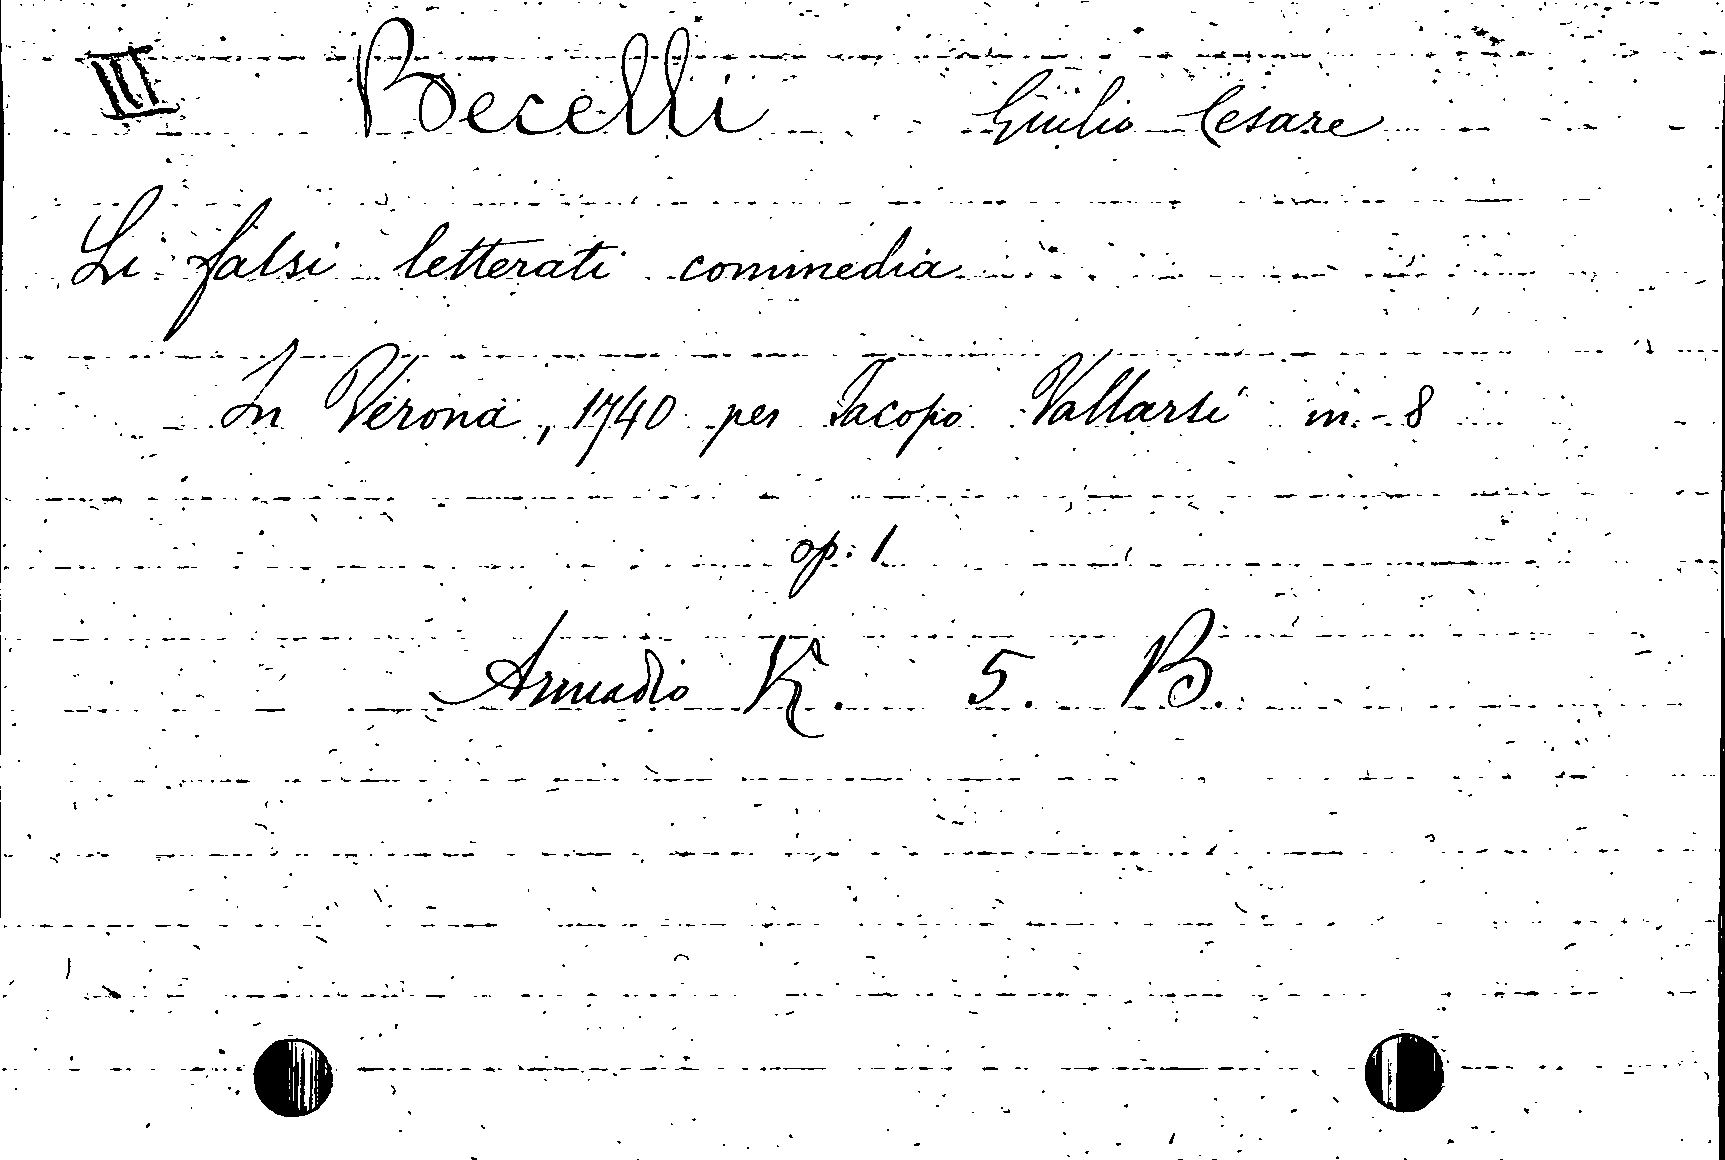 III Becelli Giulio Cesare
Li falsi letterati commedia
In Verona, 1740 per Jacopo Vallarsi in-8
op: 1
Armadio K. 5. B.